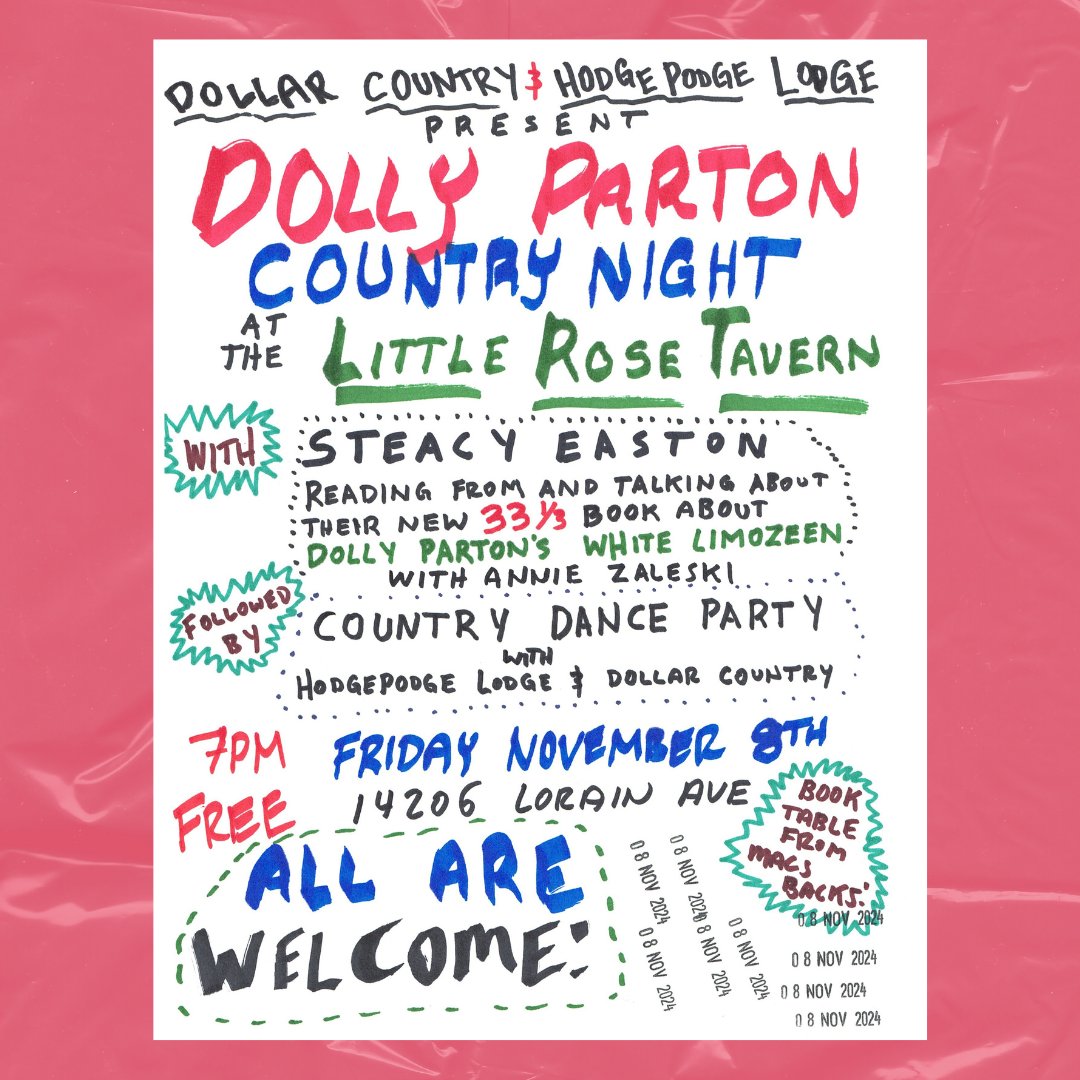 DOLLAR COUNTRY & HODGEPODGE LODGE
PRESENT
DOLLY PARTON
COUNTRY NIGHT
AT
THE
LITTLE ROSE TAVERN
WITH
STEACY EASTON
READING FROM AND TALKING ABOUT
THEIR NEW 33 1/3 BOOK ABOUT
DOLLY PARTON'S WHITE LIMOZEEN
WITH ANNIE ZALESKI
FOLLOWED
BY
COUNTRY DANCE PARTY
WITH
HODGEPODGE LODGE & DOLLAR COUNTRY
7PM
FRIDAY NOVEMBER 8TH
FREE
14206 LORAIN AVE
BOOK
TABLE
FROM
MACS
BACKS!
ALL ARE
WELCOME!
08 NOV 2024
08 NOV 2024
08 NOV 2024
08 NOV 2024
08 NOV 2024
08 NOV 2024
08 NOV 2024
08 NOV 2024
08 NOV 2024